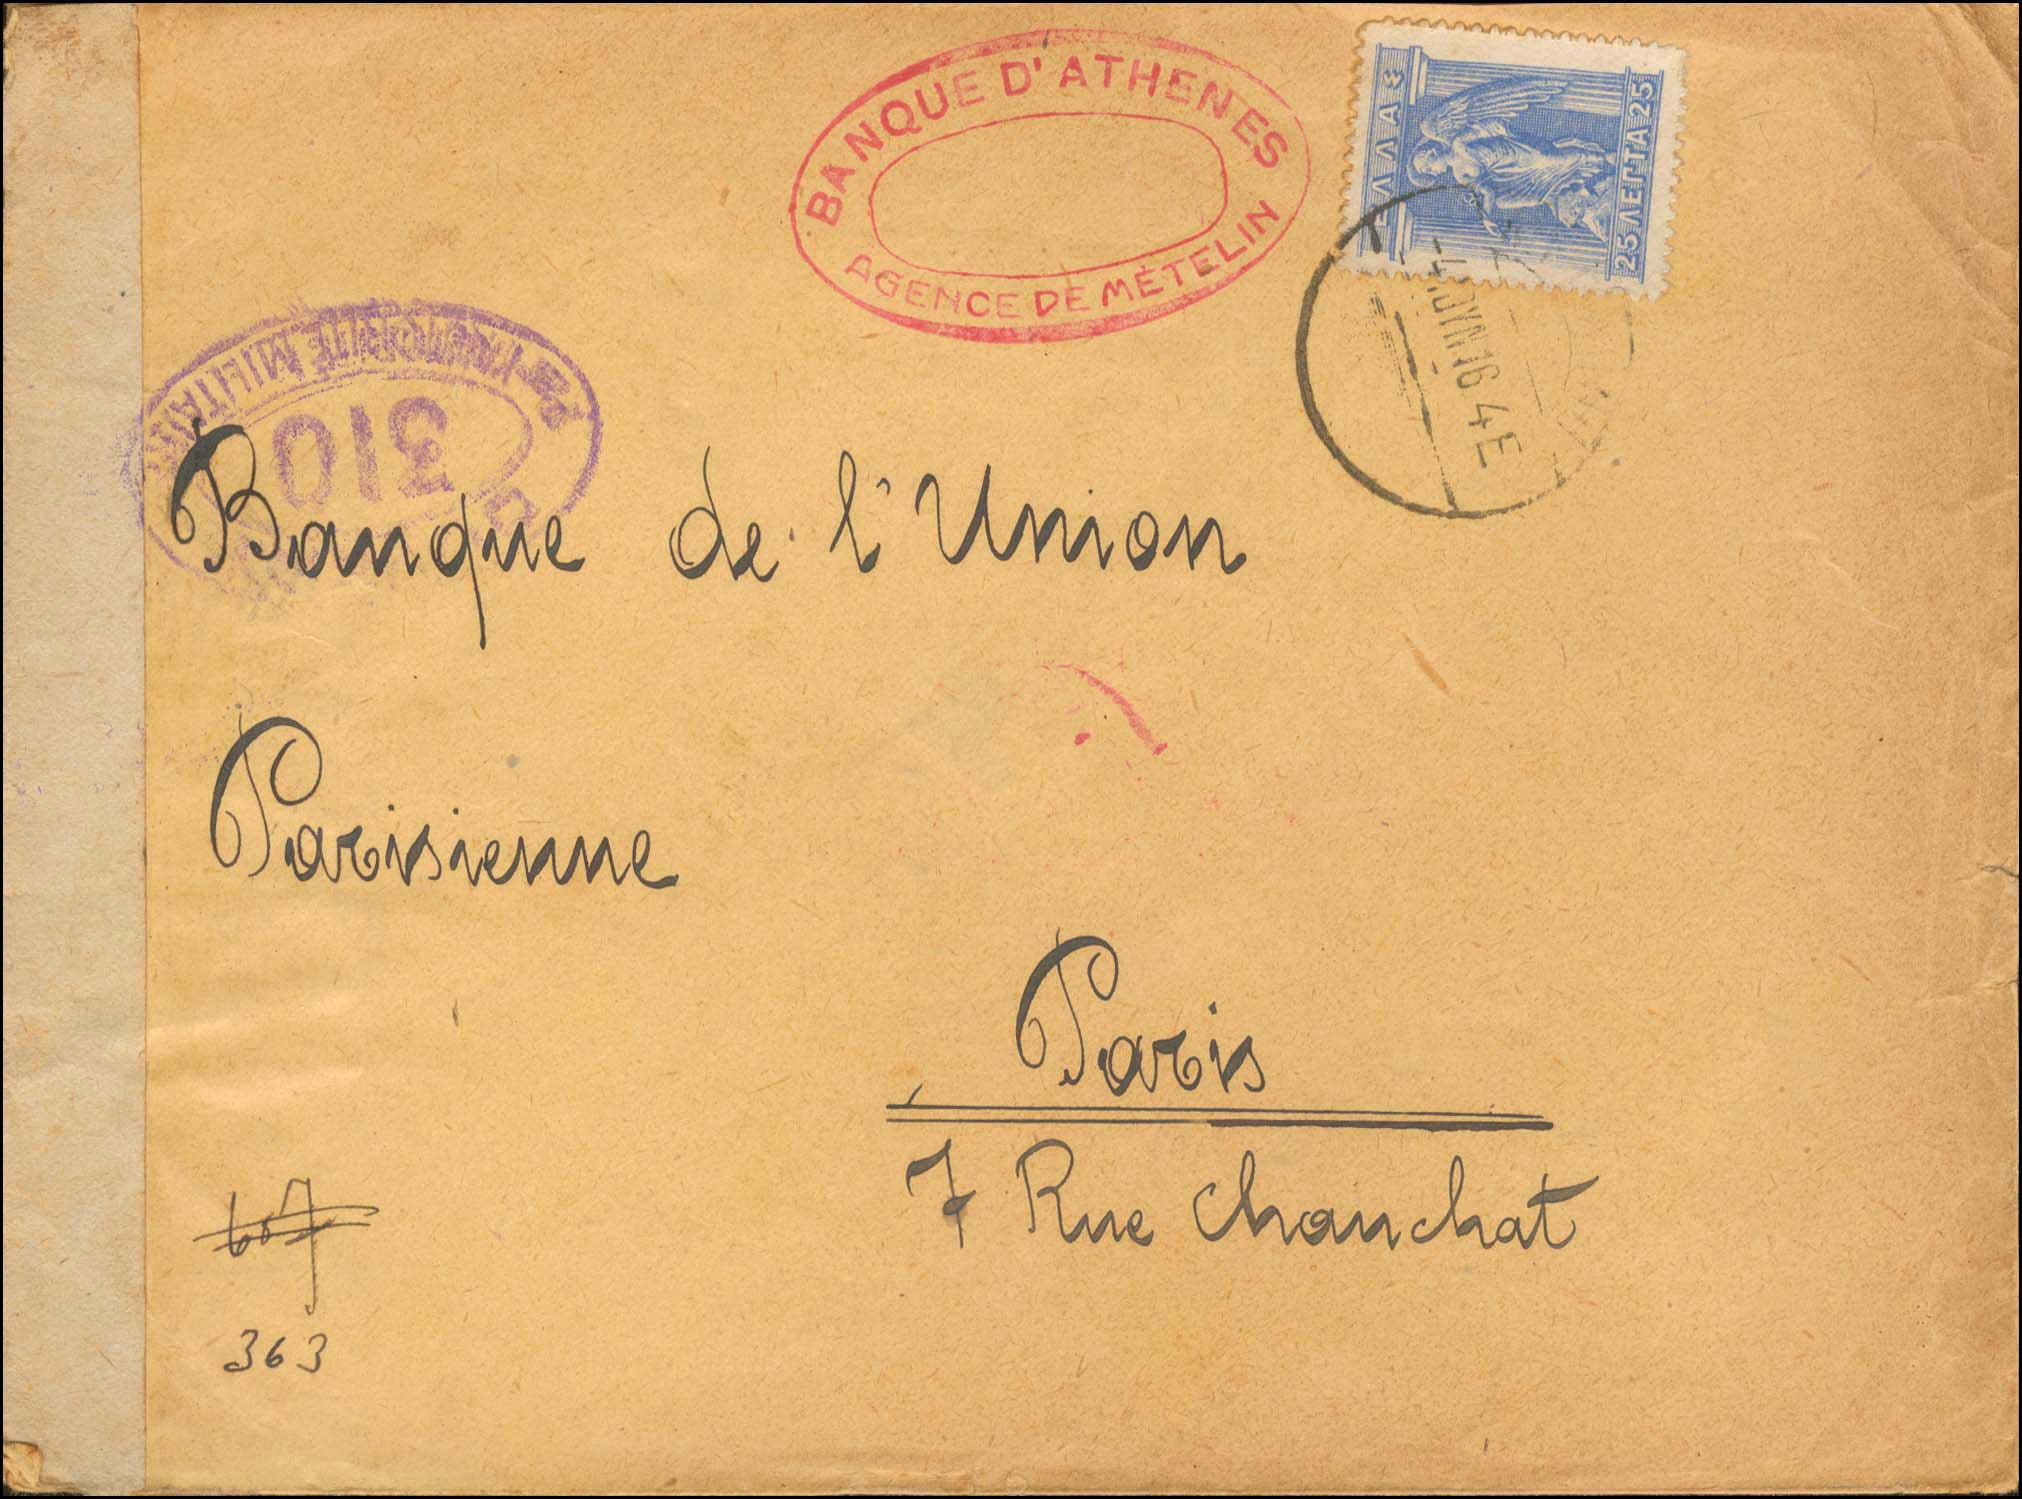 BANQUE D'ATHENES
AGENCE DE MÉTELIN
ΕΛΛΑΣ
25 ΛΕΠΤΑ 25
-4 ΙΟΥΝ 16 4Ε
MILITAIRE
310
Banque de l'Union
Parisienne
Paris
7 Rue Chauchat
363